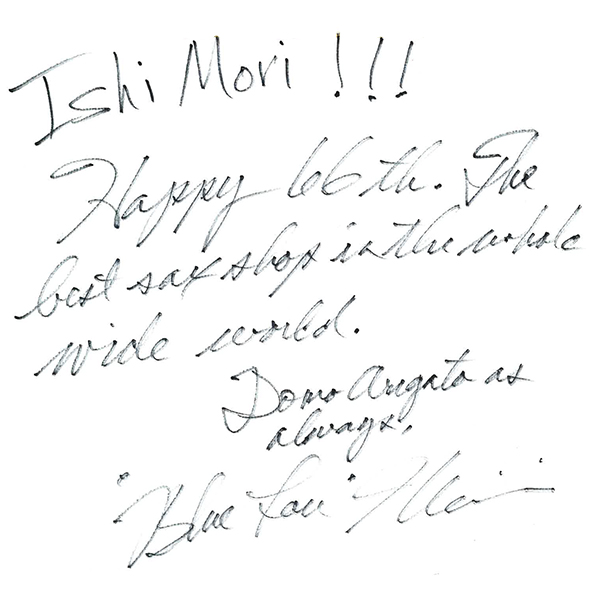 Ishi Mori !!!
Happy 66th. The
best sax shop in the whole
wide world.
Domo Arigato as
always.
"Blue Lou"